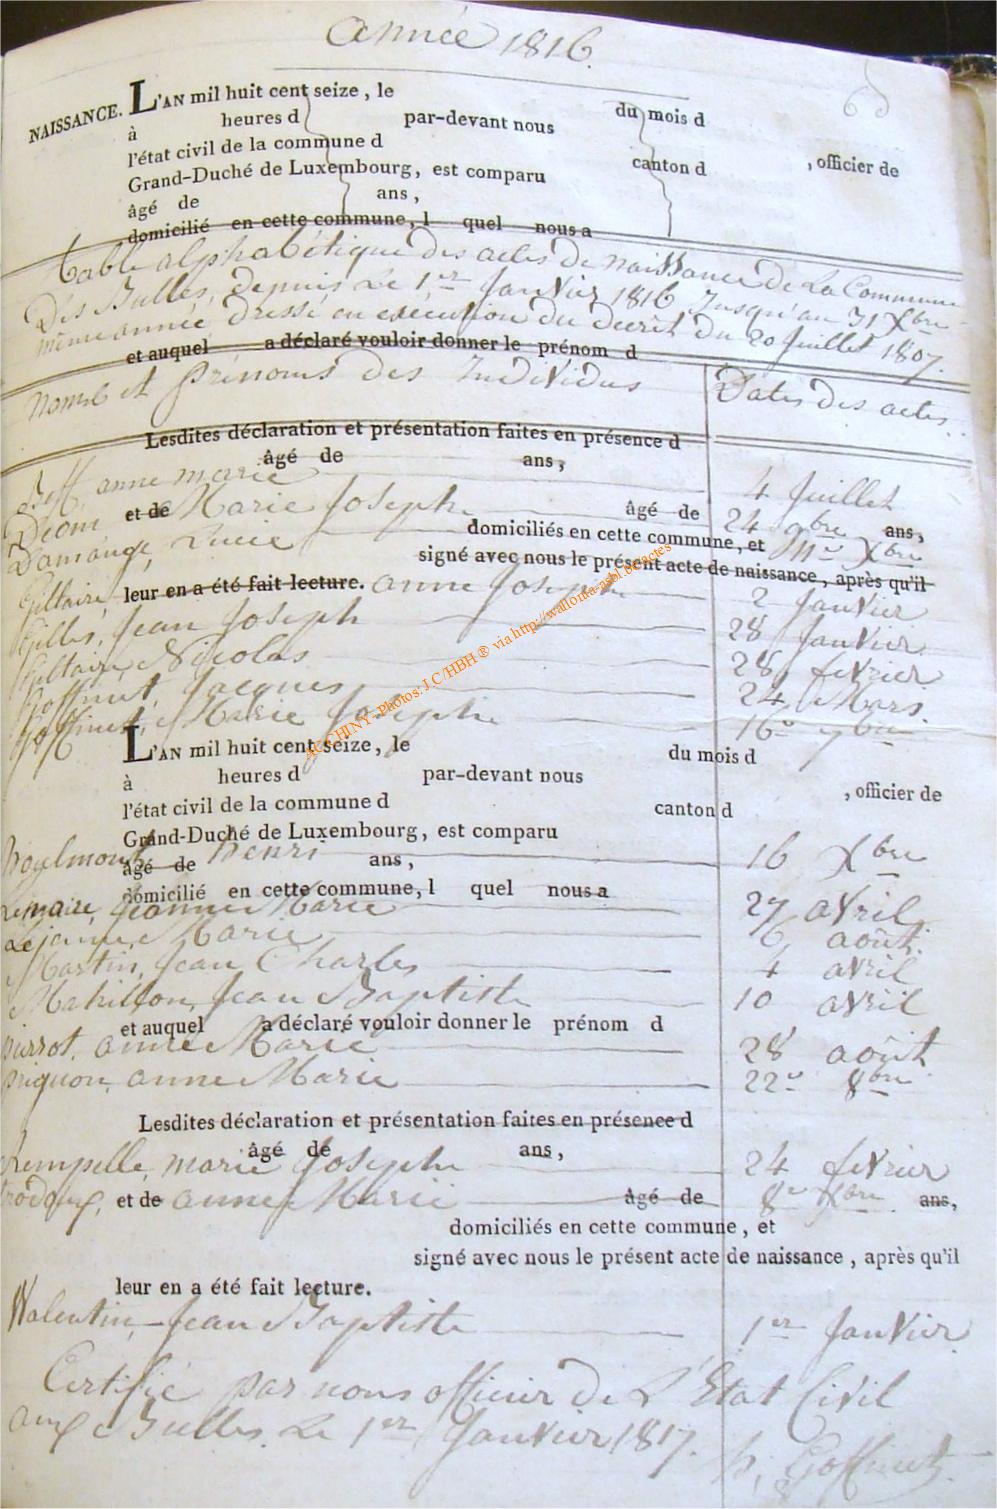 année 1816.
NAISSANCE. L'AN mil huit cent seize, le du mois d
à heures d par-devant nous , officier de
l'état civil de la commune d canton d
Grand-Duché de Luxembourg, est comparu
âgé de ans,
domicilié en cette commune, l quel nous a
table alphabétique des actes de naissance de la Commune
Des Bulles, depuis Le 1er Janvier 1816 Jusqu'au 31 Xbre
même année, dressé en exécution du décrêt du 20 Juillet 1807.
et auquel a déclaré vouloir donner le prénom d
Noms et prénoms des Individus Dates des actes.
Lesdites déclaration et présentation faites en présence d
âgé de ans,
anne marie 4 Juillet
et de Marie Joseph 24 9bre âgé de ans,
Lucie Xbre
domiciliés en cette commune, et
signé avec nous le présent acte de naissance, après qu'il
leur en a été fait lecture.
Giltaire, anne Joseph 2 Janvier
Gilles, Jean Joseph 28 Janvier
Giltaire, Nicolas 28 fevrier
Goffinet, Jacques 24 Mars.
Goffinet, Marie Joseph 16e 7bre
L'AN mil huit cent seize, le du mois d
à heures d par-devant nous , officier de
l'état civil de la commune d canton d
Grand-Duché de Luxembourg, est comparu
henri 16 Xbre
âgé de ans,
domicilié en cette commune, l quel nous a
Lemaire, Jeanne Marie 27 avril
Lejeune, Marie 6 août.
Martin, Jean Charles 4 avril
Mahillon, Jean Baptiste 10 avril
et auquel a déclaré vouloir donner le prénom d
pierrot, anne Marie 28 août
pignon, anne Marie 22e 8bre
Lesdites déclaration et présentation faites en présence d
âgé de ans,
marie Joseph 24 fevrier
et de anne Marie 8e Xbre âgé de ans,
domiciliés en cette commune, et
signé avec nous le présent acte de naissance, après qu'il
leur en a été fait lecture.
Walentin, Jean Baptiste 1er Janvier.
Certifié par nous officier de L'Etat Civil
aux Bulles. Le 1er Janvier 1817.
h, Goffinet.
AC CHINY - Photos: J.C/HBH ® via http://wallonia-asbl.be/actes